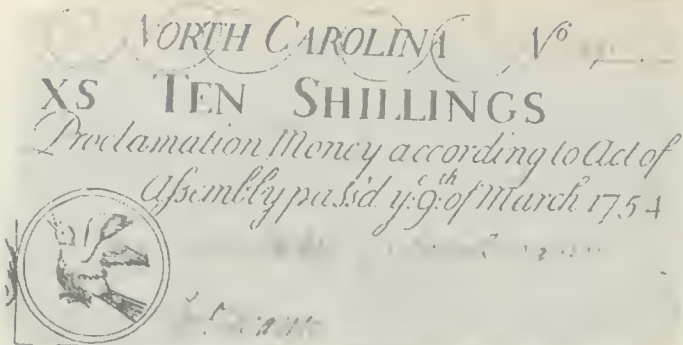 NORTH CAROLINA Nº
XS TEN SHILLINGS
Proclamation Money according to Act of
Assembly pass'd yᵉ 9ᵗʰ of March 1754